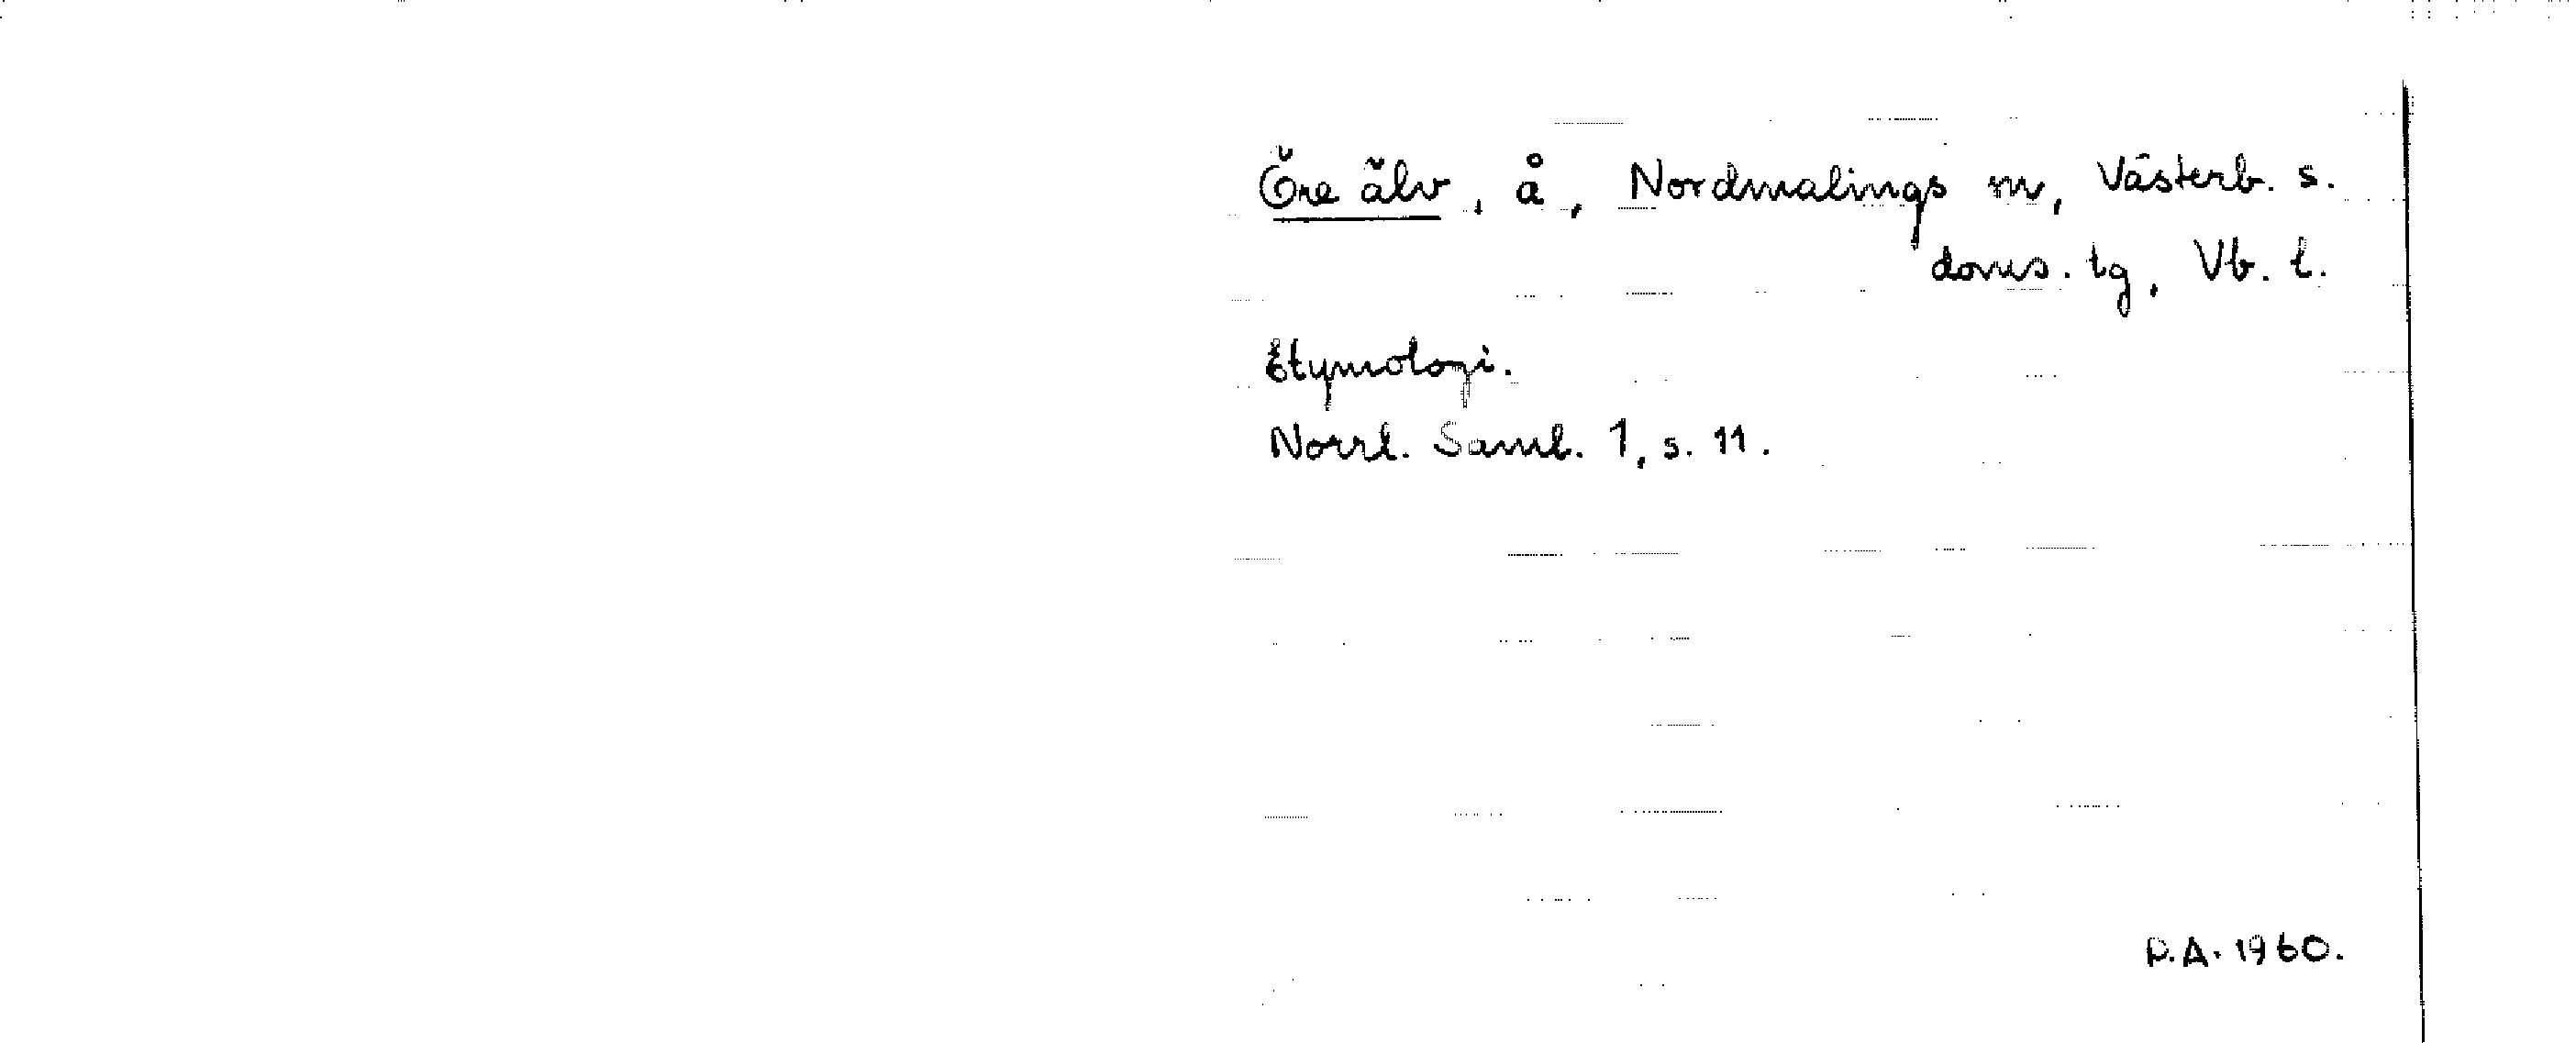 Öre älv, å, Nordmalings sn, Västerb. s.
doms. tg, Vb. l.
Etymologi.
Norrl. Saml. 1, s. 11.
D.A. 1960.